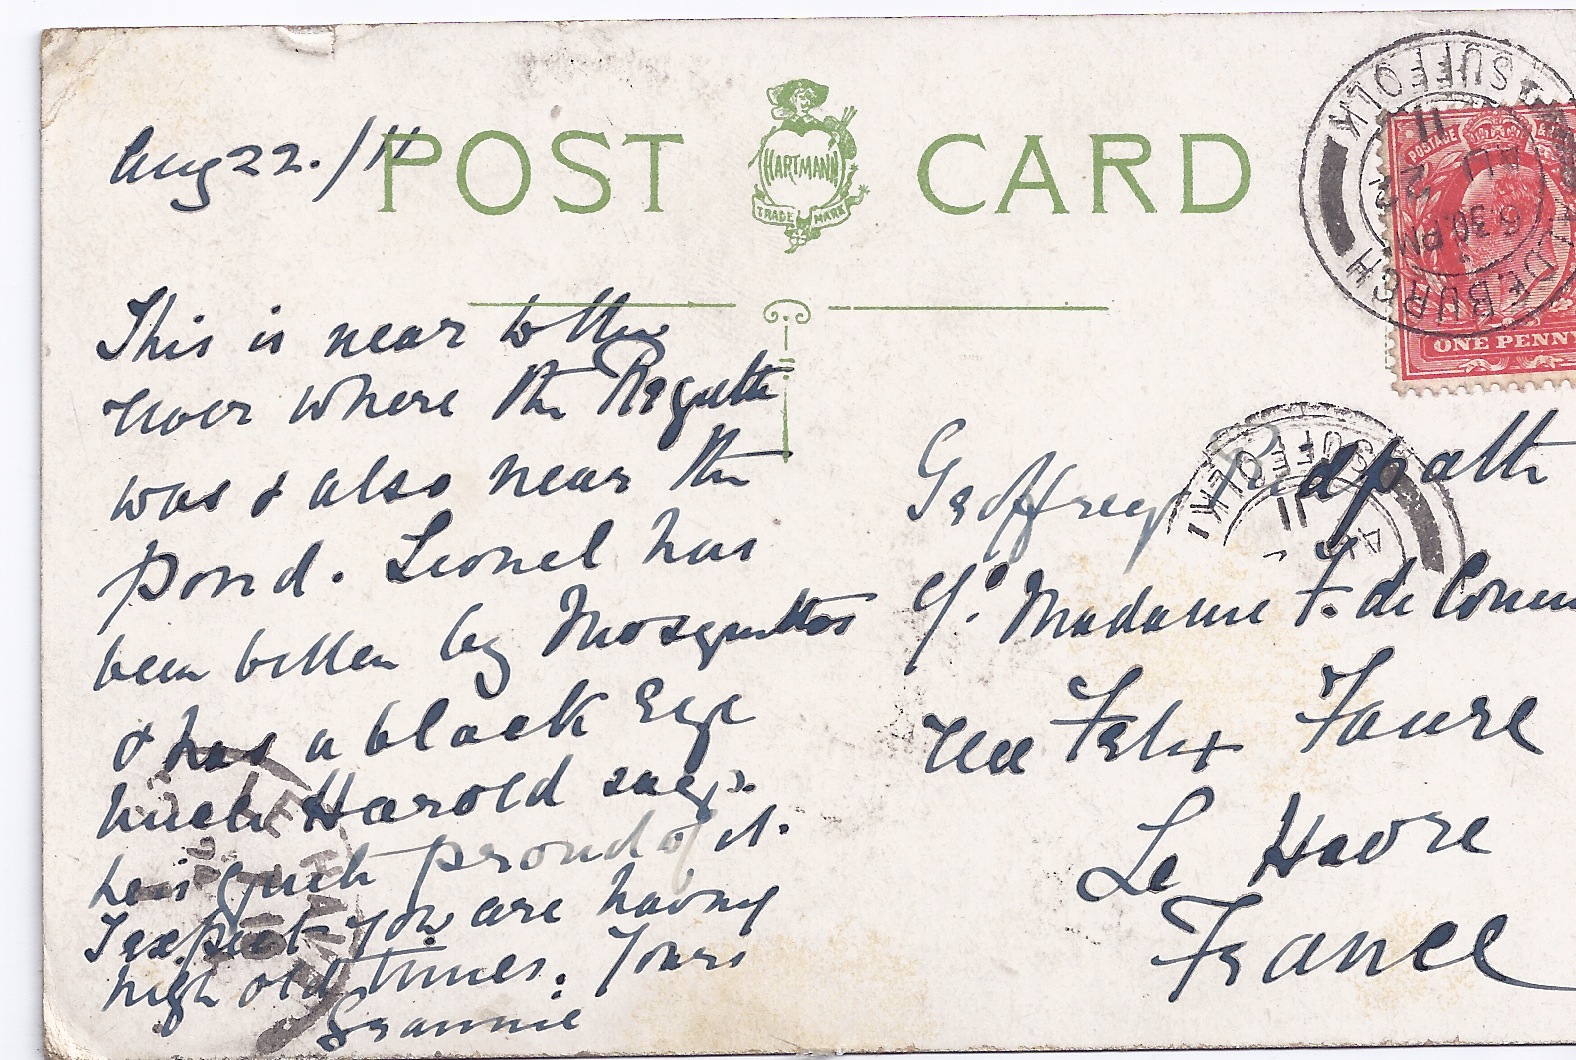 Aug 22./11
POST CARD
HARTMANN
TRADE MARK
This is near to the
river where the Regatta
was & also near the
pond. Lionel has
been bitten by Mosquittos
& has a black Eye
Uncle Harold says.
he is quite proud of it.
I expect you are having
high old times. Yours
Grannie
SUFFOLK
11
AU 23
6.30 PM
DEBURGH
POSTAGE
ONE PENNY
SUFFOLK
11
Geoffrey Ridpath
c/o. Madame F. de Conin
rue Felix Faure
Le Havre
France